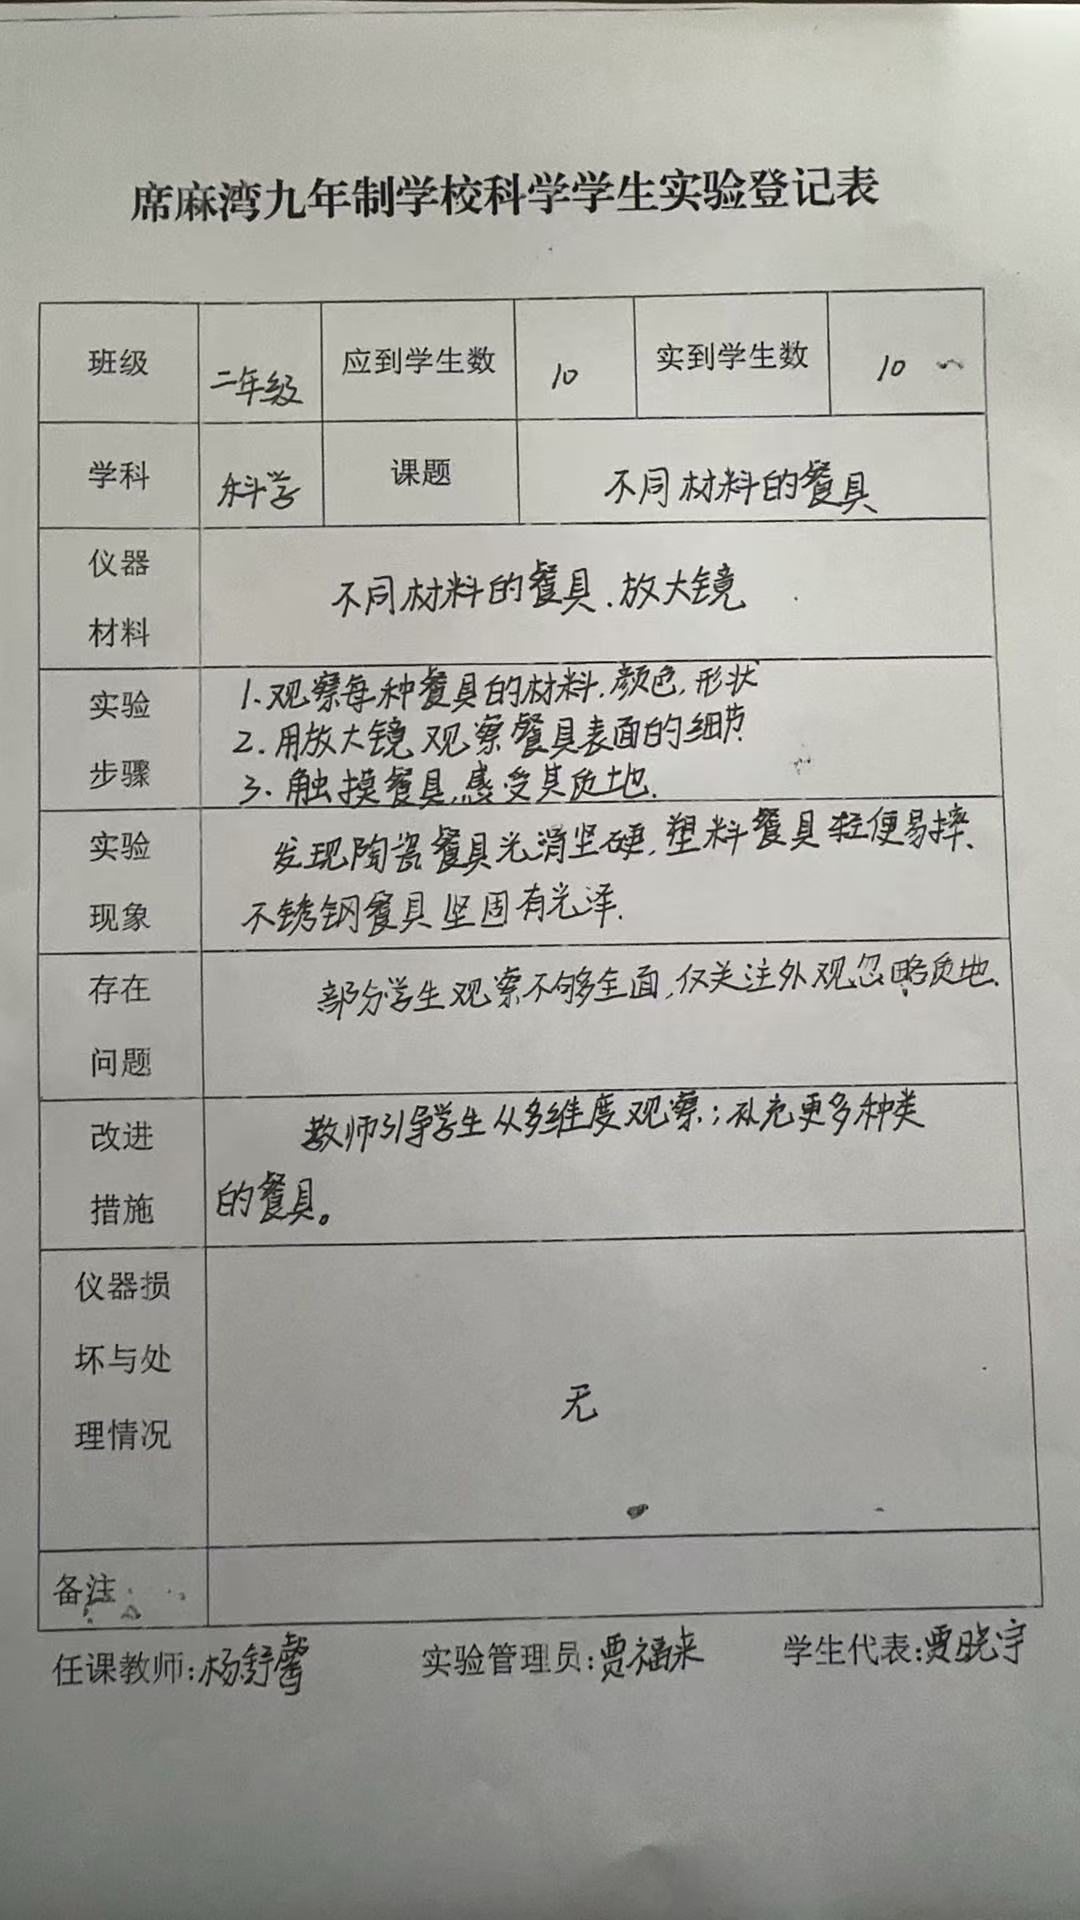 席麻湾九年制学校科学学生实验登记表
班级 二年级 应到学生数 10 实到学生数 10
学科 科学 课题 不同材料的餐具
仪器 材料 不同材料的餐具、放大镜
实验 步骤 1.观察每种餐具的材料、颜色、形状
2.用放大镜观察餐具表面的细节
3.触摸餐具,感受其质地.
实验 发现陶瓷餐具光滑坚硬,塑料餐具轻便易摔、
现象 不锈钢餐具坚固有光泽.
存在 部分学生观察不够全面,仅关注外观忽略质地.
问题
改进 教师引导学生从多维度观察;补充更多种类
措施 的餐具。
仪器损
坏与处
理情况 无
备注
任课教师:杨舒馨 实验管理员:贾福来 学生代表:贾晓宇